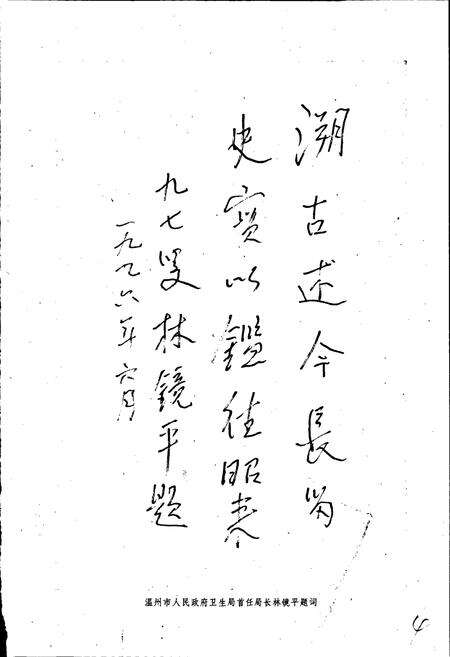 溯古述今長留
史實以鑑往昭來
九七叟林镜平题
一九九六年六月
温州市人民政府卫生局首任局长林镜平题词
4